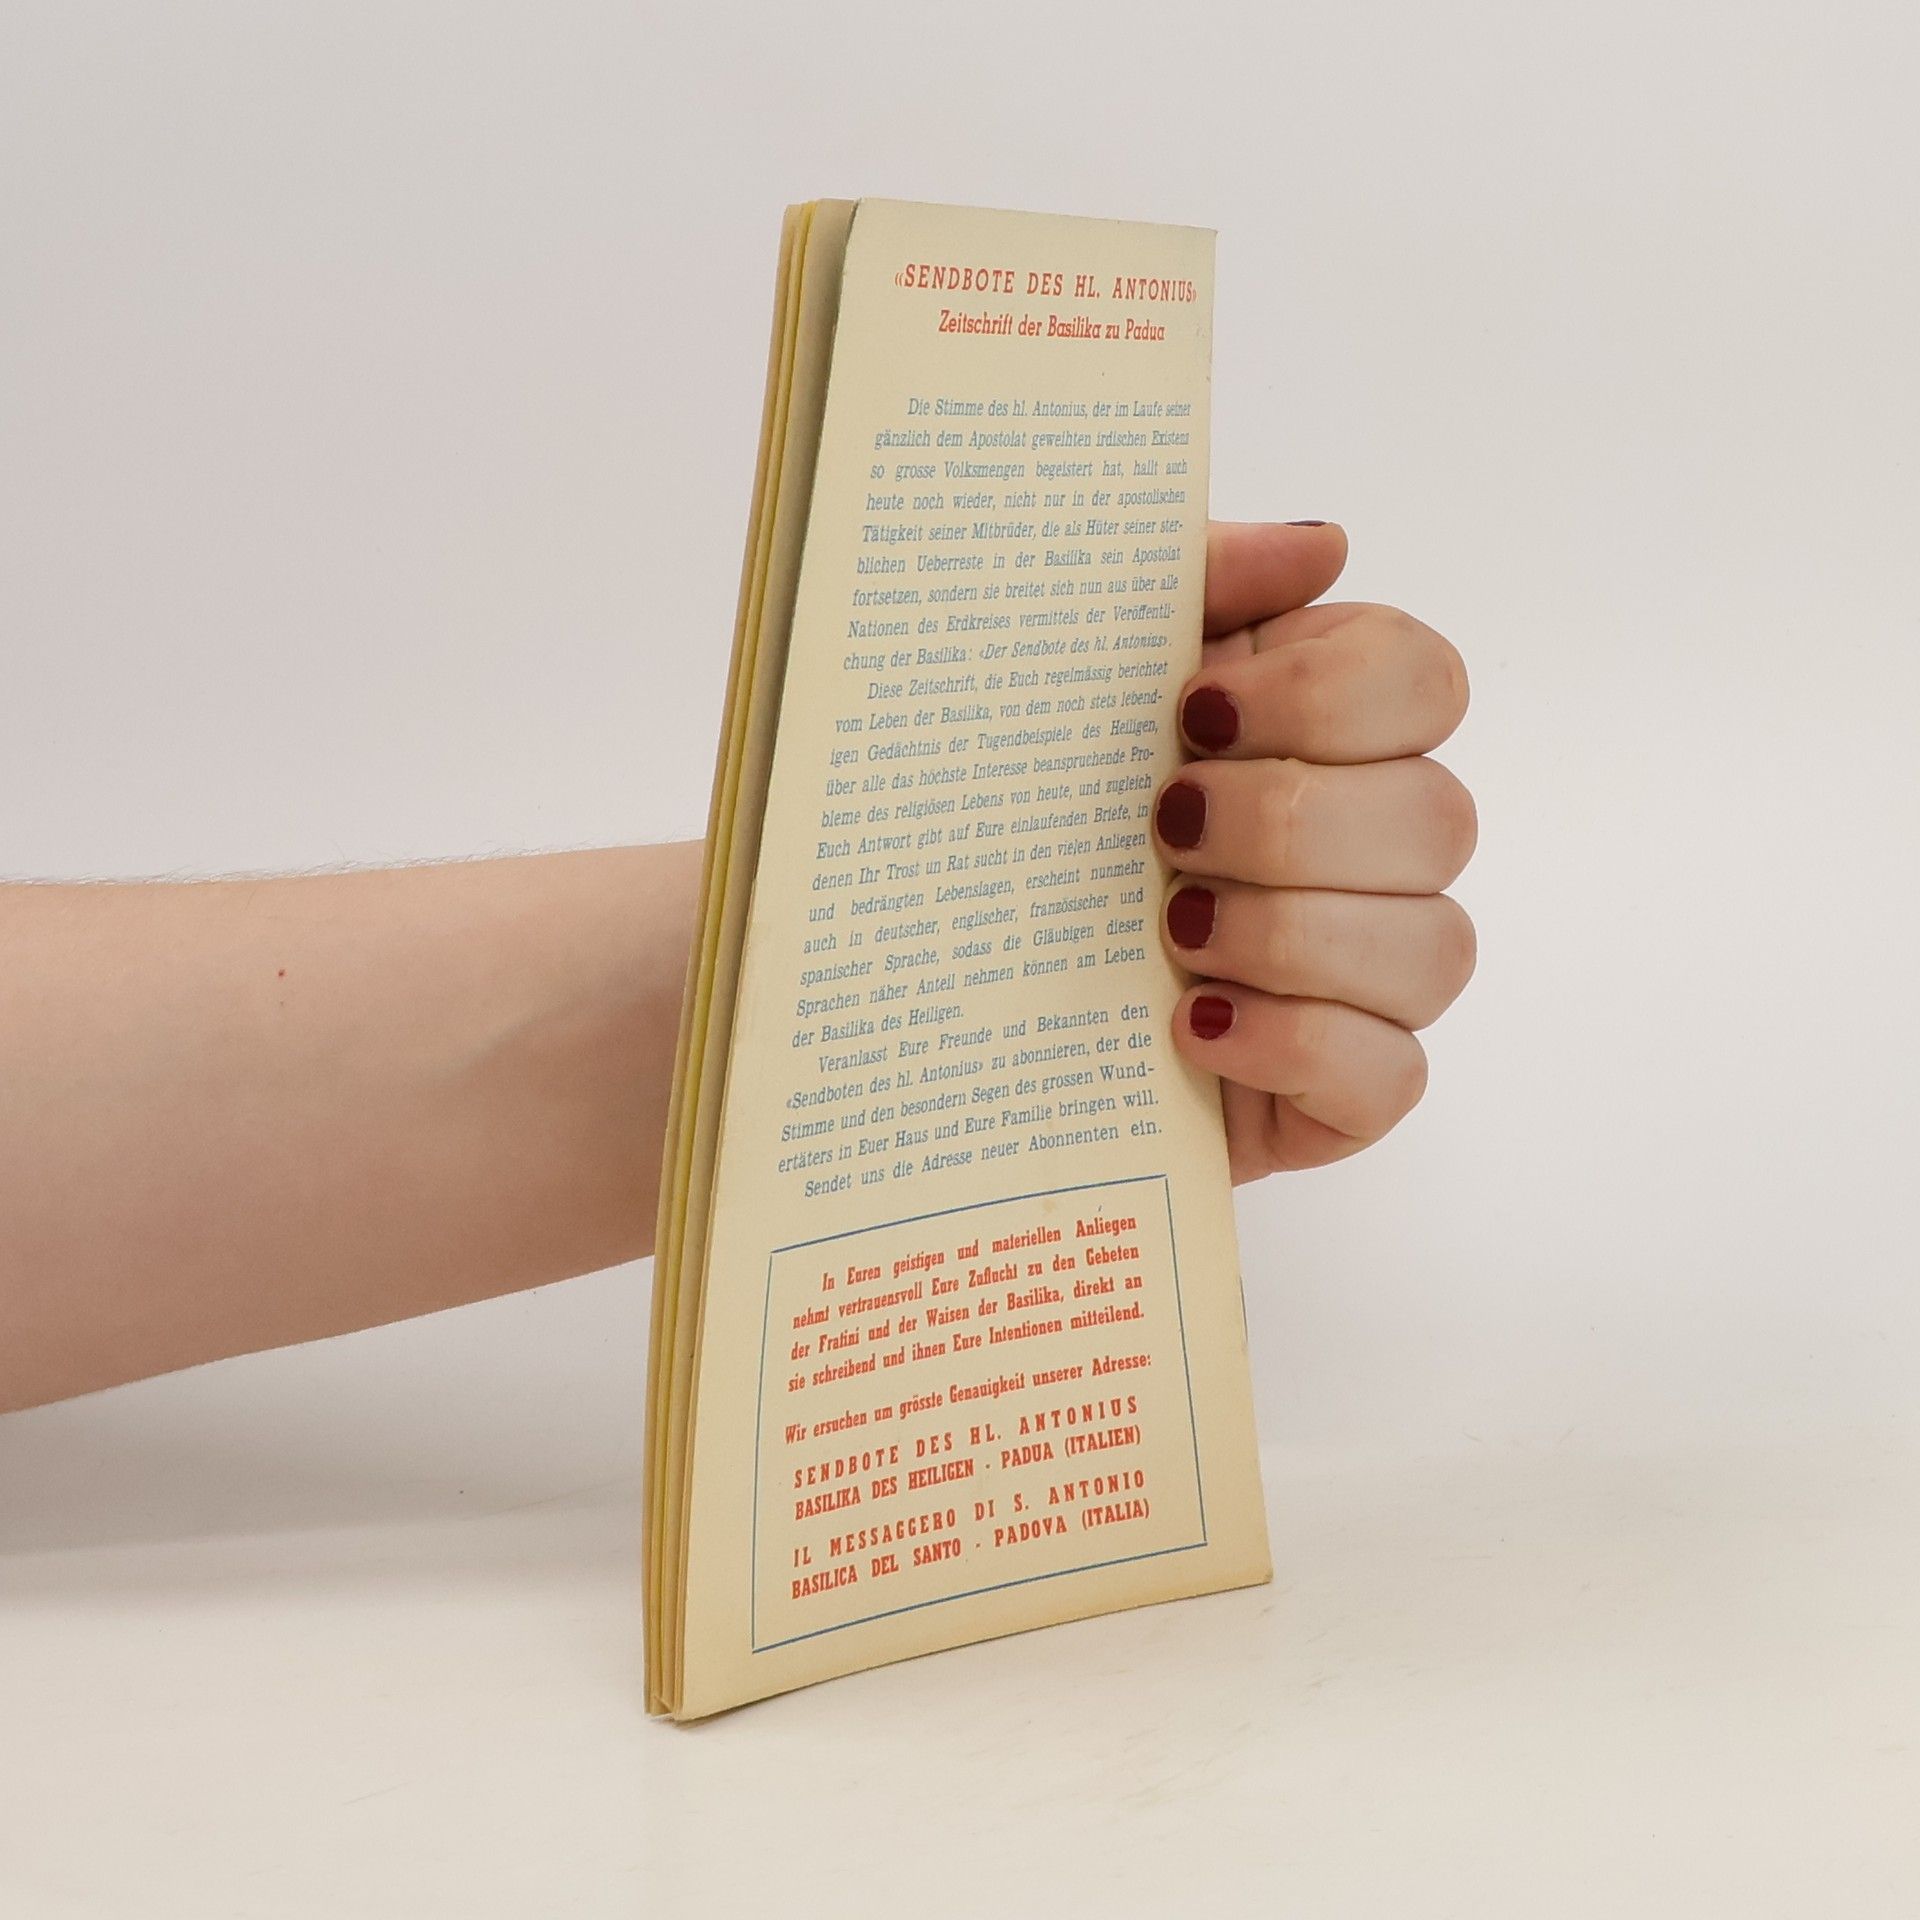 «SENDBOTE DES HL. ANTONIUS»
Zeitschrift der Basilika zu Padua
Die Stimme des hl. Antonius, der im Laufe seiner
gänzlich dem Apostolat geweihten irdischen Existens
so grosse Volksmengen begeistert hat, hallt auch
heute noch wieder, nicht nur in der apostolischen
Tätigkeit seiner Mitbrüder, die als Hüter seiner ster-
blichen Ueberreste in der Basilika sein Apostolat
fortsetzen, sondern sie breitet sich nun aus über alle
Nationen des Erdkreises vermittels der Veröffentli-
chung der Basilika: «Der Sendbote des hl. Antonius».
Diese Zeitschrift, die Euch regelmässig berichtet
vom Leben der Basilika, von dem noch stets lebend-
igen Gedächtnis der Tugendbeispiele des Heiligen,
über alle das höchste Interesse beanspruchende Pro-
bleme des religiösen Lebens von heute, und zugleich
Euch Antwort gibt auf Eure einlaufenden Briefe, in
denen Ihr Trost un Rat sucht in den vielen Anliegen
und bedrängten Lebenslagen, erscheint nunmehr
auch in deutscher, englischer, französischer und
spanischer Sprache, sodass die Gläubigen dieser
Sprachen näher Anteil nehmen können am Leben
der Basilika des Heiligen.
Veranlasst Eure Freunde und Bekannten den
«Sendboten des hl. Antonius» zu abonnieren, der die
Stimme und den besondern Segen des grossen Wund-
ertäters in Euer Haus und Eure Familie bringen will.
Sendet uns die Adresse neuer Abonnenten ein.
In Euren geistigen und materiellen Anliegen
nehmt vertrauensvoll Eure Zuflucht zu den Gebeten
der Fratini und der Waisen der Basilika, direkt an
sie schreibend und ihnen Eure Intentionen mitteilend.
Wir ersuchen um grösste Genauigkeit unserer Adresse:
SENDBOTE DES HL. ANTONIUS
BASILIKA DES HEILIGEN - PADUA (ITALIEN)
IL MESSAGGERO DI S. ANTONIO
BASILICA DEL SANTO - PADOVA (ITALIA)